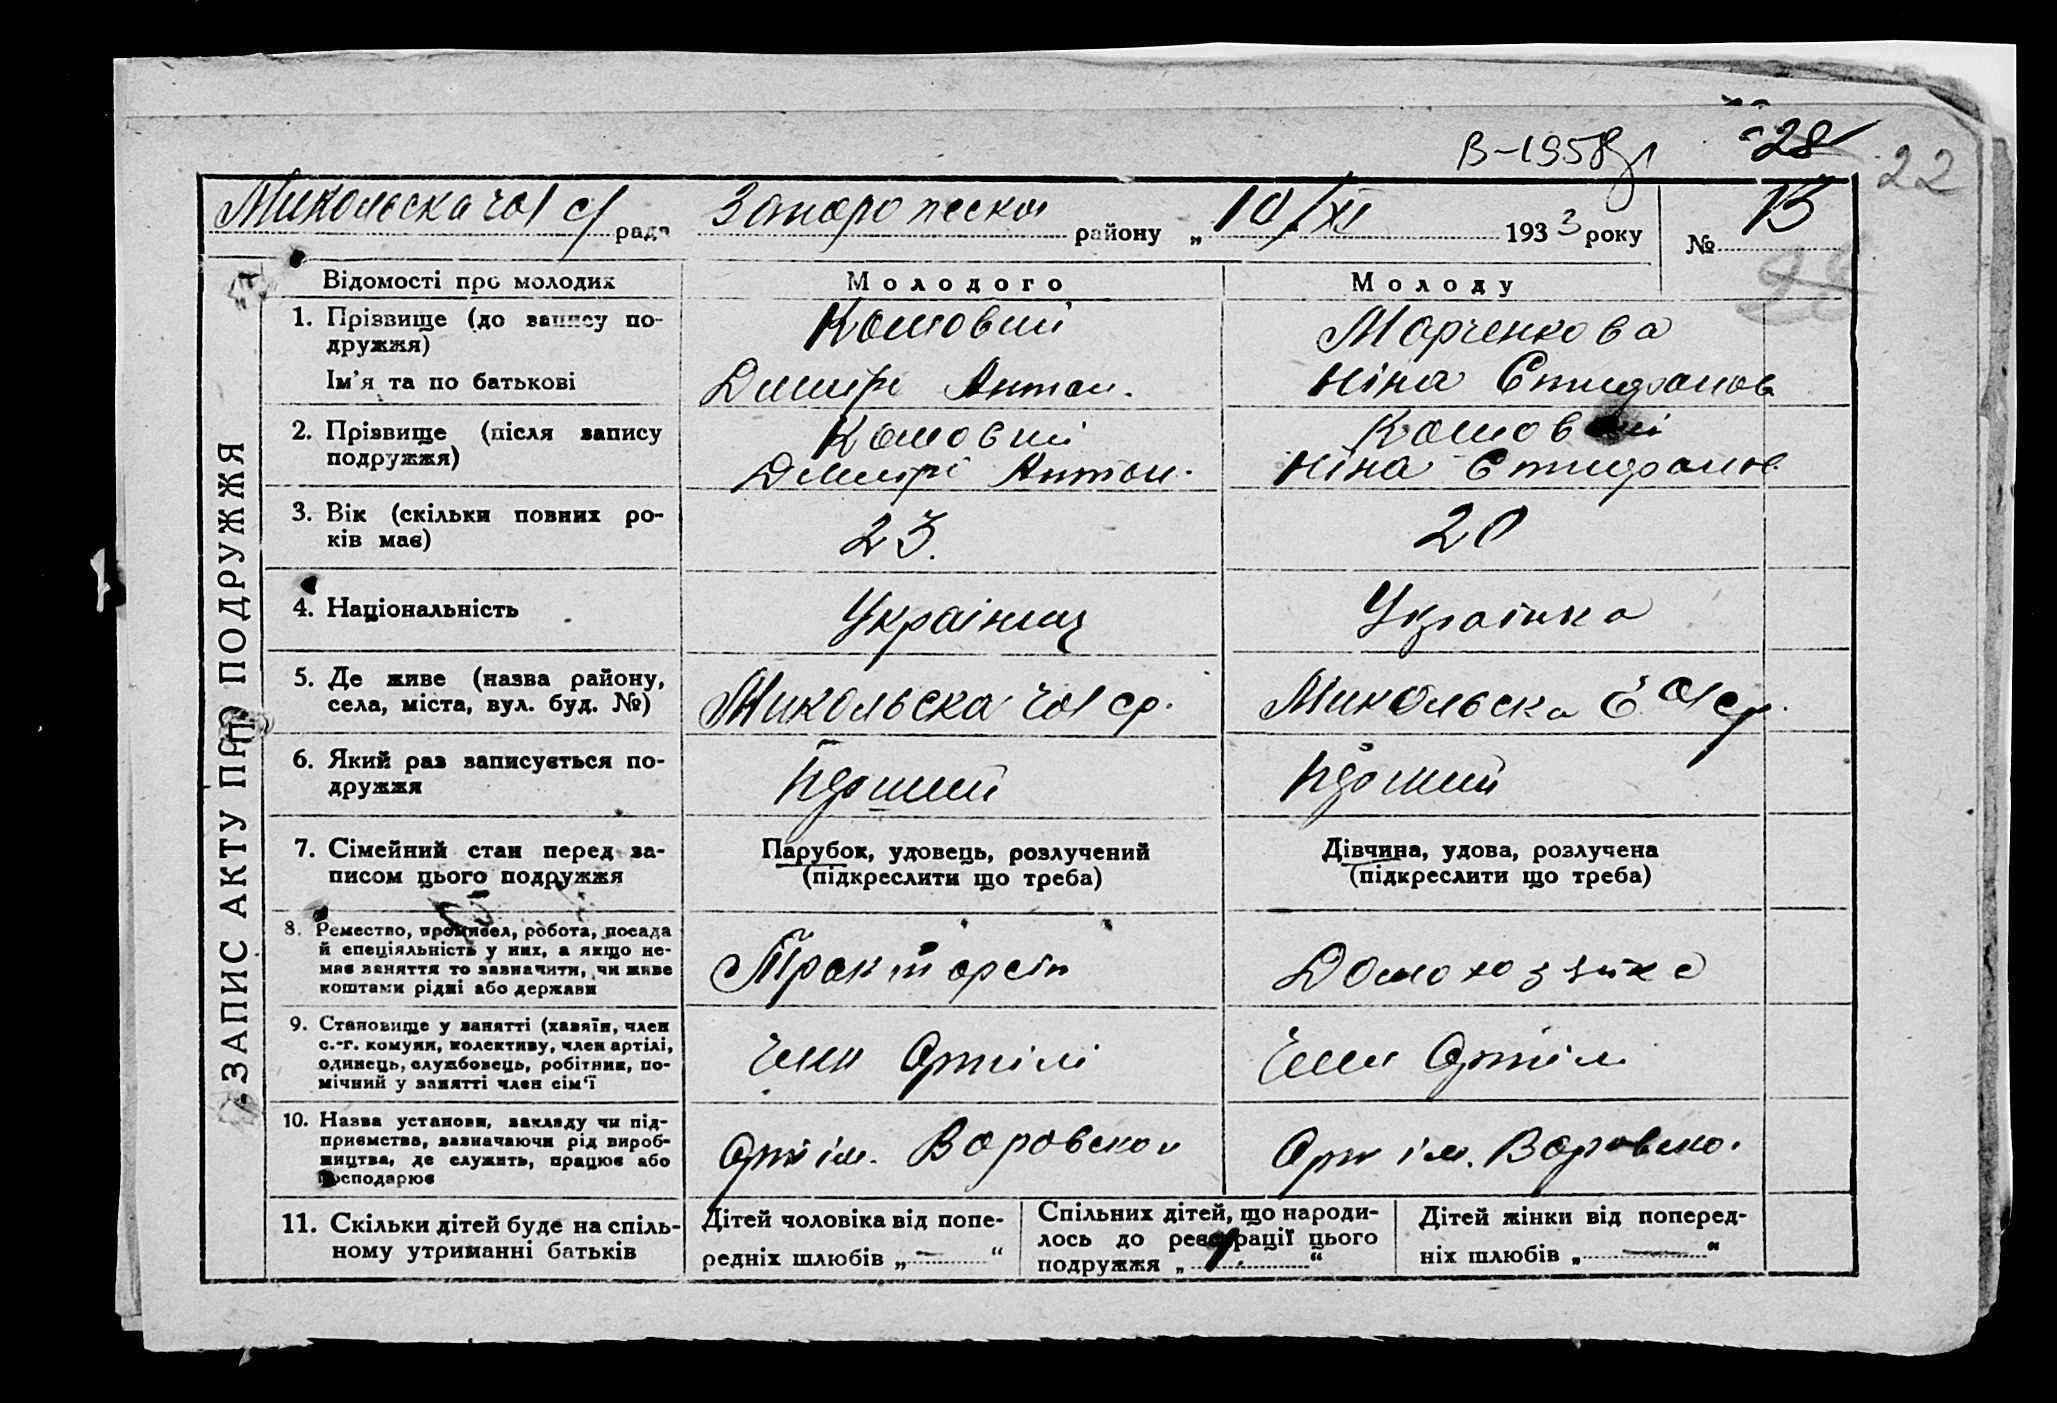 В-1958
28
22
Микольска рада Запорожской району „10/XI 1933 року № 13
28
ЗАПИС АКТУ ПРО ПОДРУЖЖЯ
Відомості про молодих
Молодого
Молоду
1. Прізвище (до запису по-
дружжя)
Ім'я та по батькові
Комовий
Дмитрі Антон.
Марченкова
Ніна Стифанов
2. Прізвище (після запису
подружжя)
Комовий
Дмитрі Антон.
Ніна Стифанов
3. Вік (скільки повних ро-
ків має)
23.
20
4. Національність
Українец
Українка
5. Де живе (назва району,
села, міста, вул. буд. №)
Микольска ср.
Микольска ср.
6. Який раз записується по-
дружжя
Перший
Перший
7. Сімейний стан перед за-
писом цього подружжя
Парубок, удовець, розлучений
(підкреслити що треба)
Дівчина, удова, розлучена
(підкреслити що треба)
8. Ремество, промисел, робота, посада
й спеціяльність у них, а якщо не-
має заняття то зазначити, чи живе
коштами рідні або держави
Тракторсіт
Домохозяйка
9. Становище у занятті (хазяїн, член
с.-г. комуни, колективу, член артілі,
одинець, службовець, робітник, по-
мічний у занятті член сім'ї
Член Артілі
Член Артілі
10. Назва установи, закладу чи під-
приємства, зазначаючи рід вироб-
ництва, де служить, працює або
господарює
Арт ім. Воровског
Арт ім. Воровско.
11. Скільки дітей буде на спіль-
ному утриманні батьків
Дітей чоловіка від попе-
редніх шлюбів „ — “
Спільних дітей, що народи-
лось до реєстрації цього
подружжя „ 1. “
Дітей жінки від поперед-
ніх шлюбів „ — “